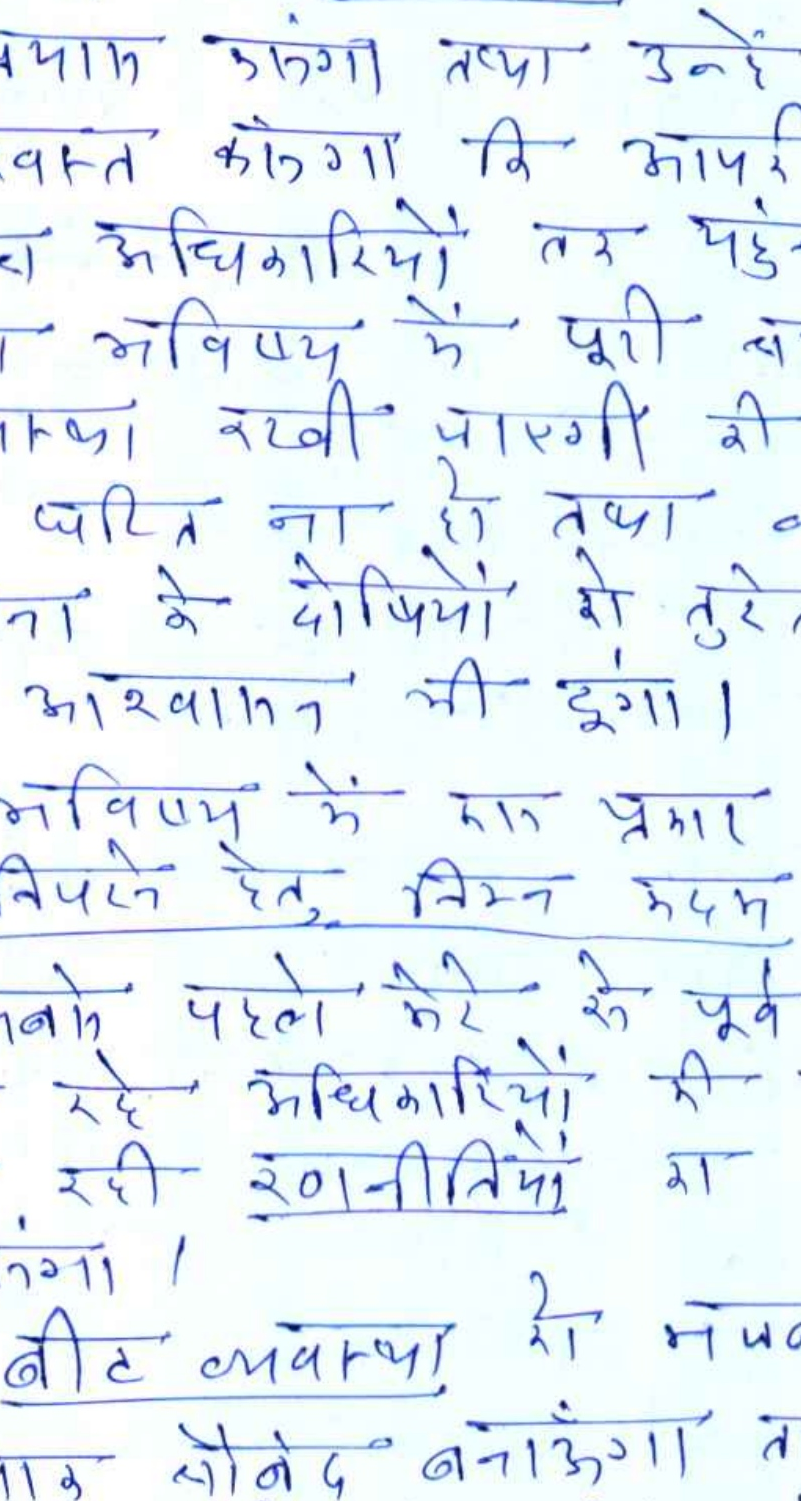 प्रयास करूंगा तथा उन्हें
श्वस्त करूंगा कि आपकी
अधिकारियों तक पहुं
भविष्य में पूरी
रखी जाएगी की
घटित ना हो तथा
ना के दोषियों को तुरंत
आश्वासन भी दूंगा।
भविष्य में इस प्रकार
निपटने हेतु निम्न कदम
सबसे पहले मेरे से पूर्व
रहे अधिकारियों की
रही रणनीतियों का
बीट व्यवस्था को मजब
चाक चौबंद बनाऊँगा त